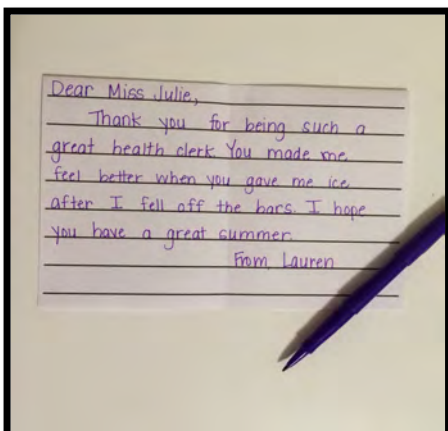 Dear Miss Julie,
Thank you for being such a
great health clerk. You made me
feel better when you gave me ice
after I fell off the bars. I hope
you have a great summer.
From, Lauren